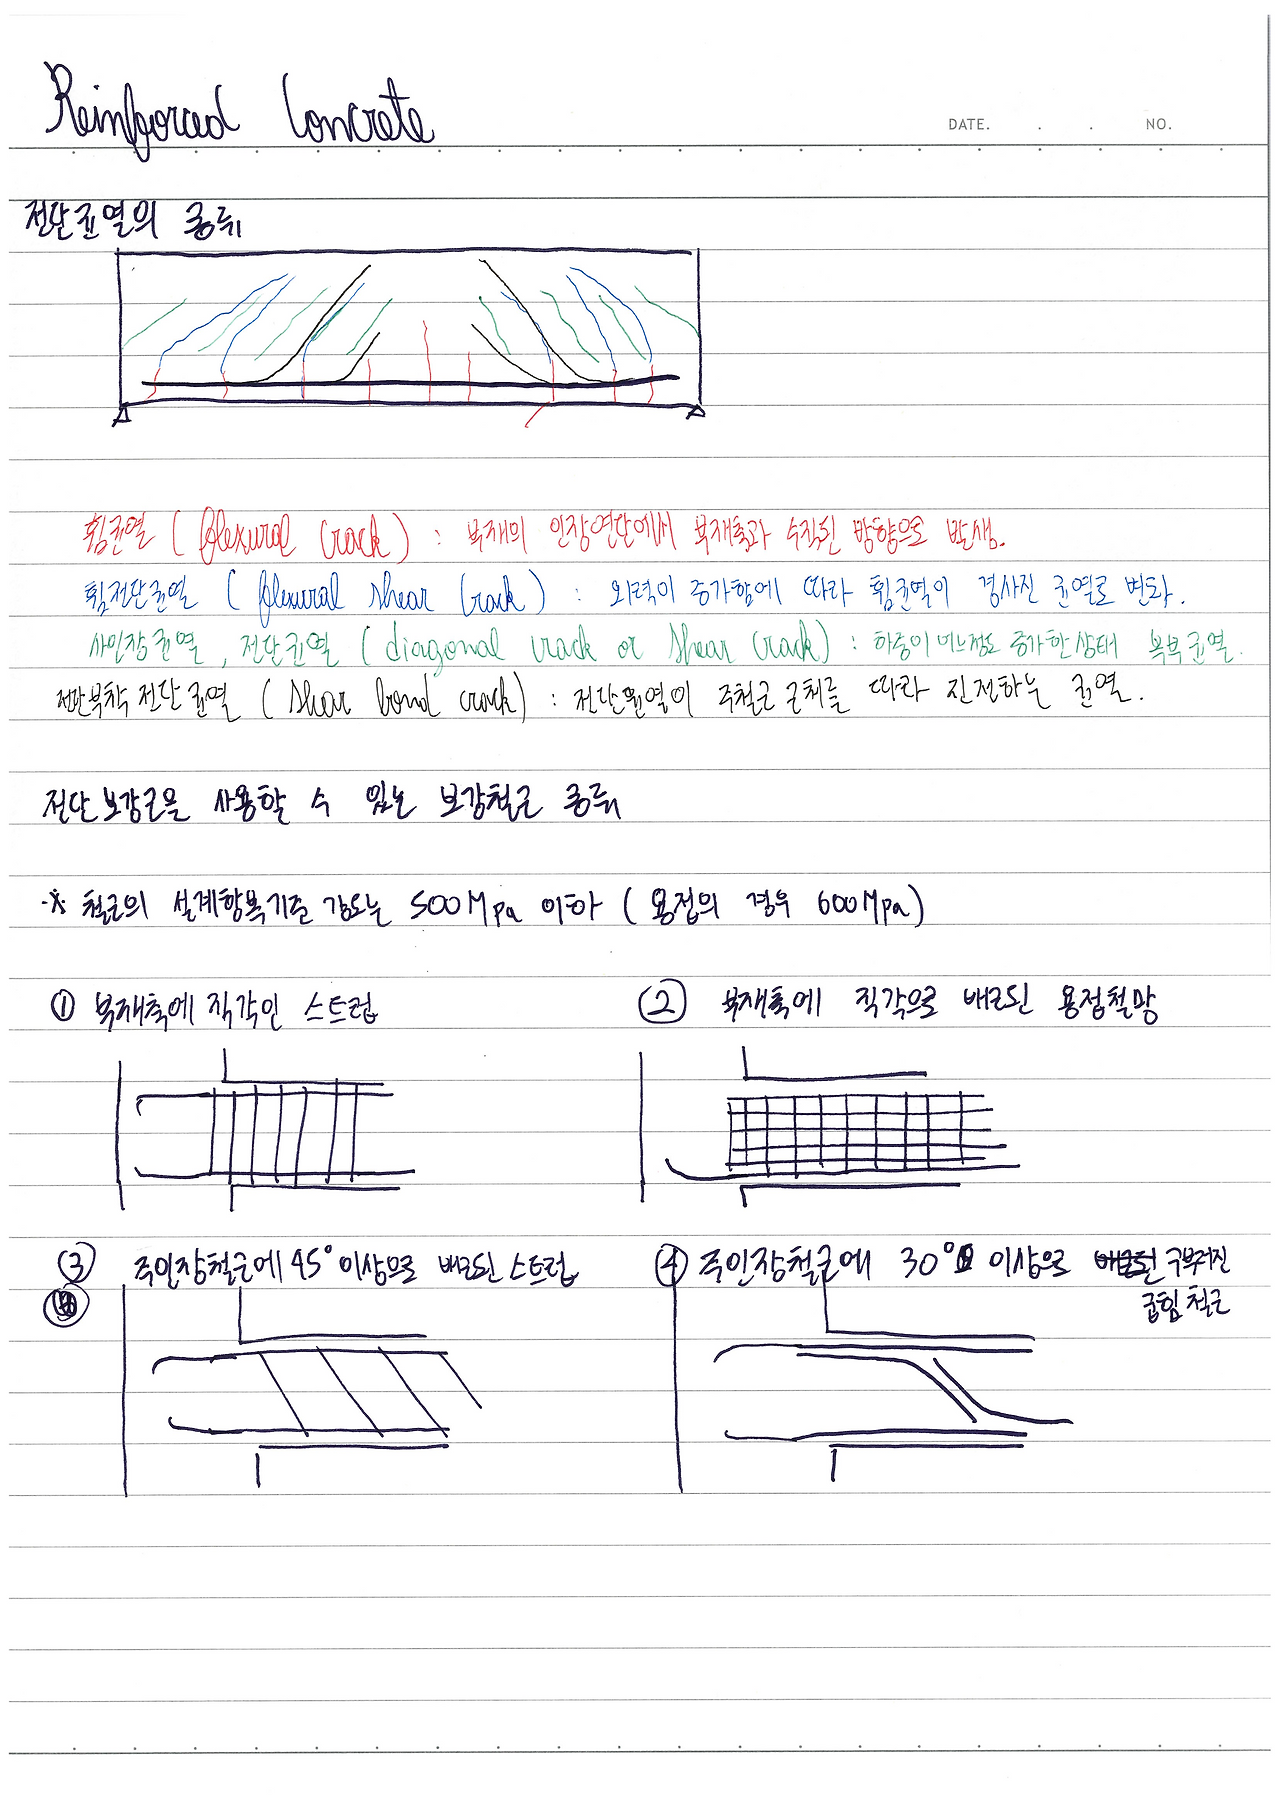 Reinforced Concrete
DATE. . . NO.
전단균열의 종류
휨균열 ( flexural crack ) : 부재의 인장연단에서 부재축과 수직된 방향으로 발생.
휨전단균열 ( flexural shear crack ) : 외력이 증가함에 따라 휨균열이 경사진 균열로 변화.
사인장균열, 전단균열 ( diagonal crack or shear crack ) : 하중이 어느정도 증가한 상태 복부균열.
전단부착 전단균열 ( shear bond crack ) : 전단균열이 주철근 근처를 따라 진전하는 균열.
전단보강근을 사용할 수 있는 보강철근 종류
※ 철근의 설계항복기준 강도는 500Mpa 이하 ( 용접의 경우 600Mpa )
① 부재축에 직각인 스트럽
② 부재축에 직각으로 배근된 용접철망
③ 주인장철근에 45° 이상으로 배근된 스트럽
④ 주인장철근에 30° 이상으로 구부러진
굽힘철근